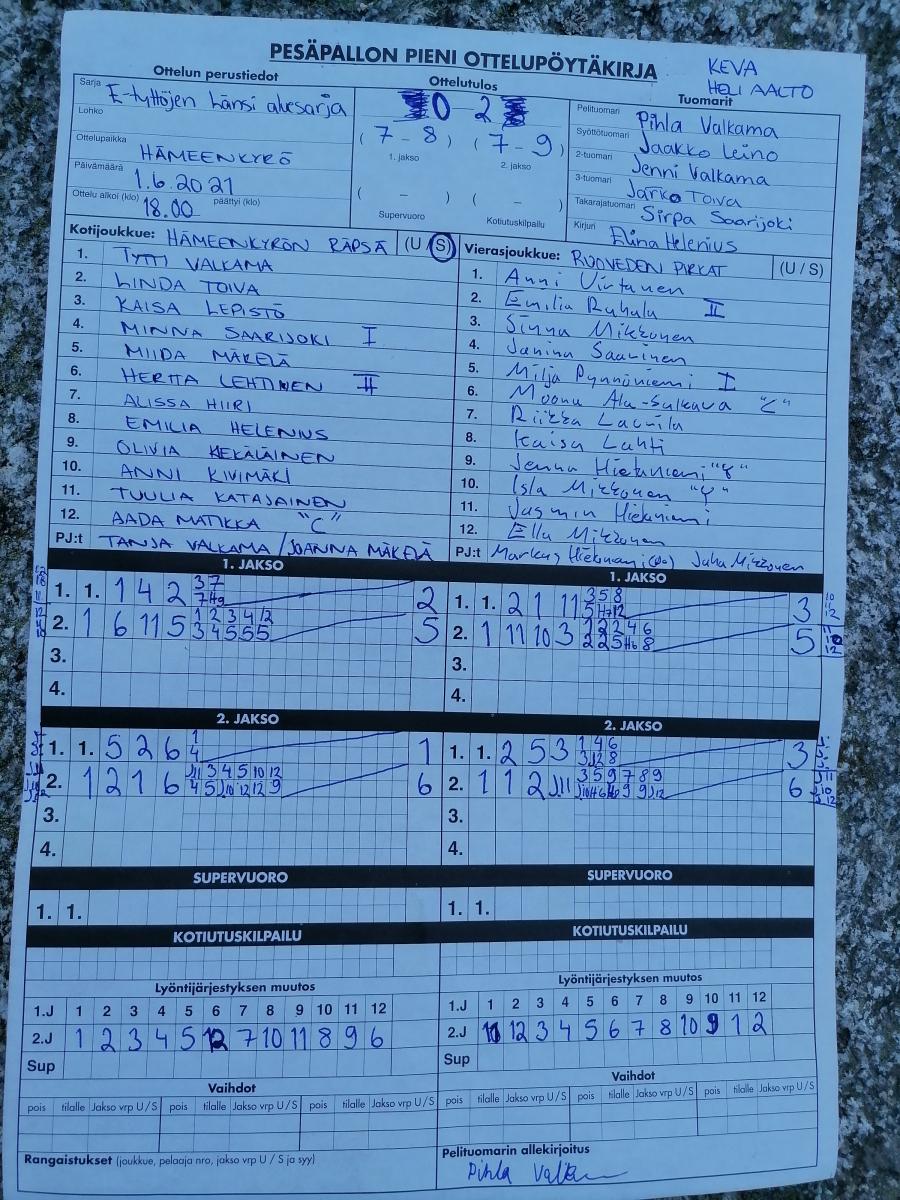 PESÄPALLON PIENI OTTELUPÖYTÄKIRJA
KEVA
HELI AALTO
Ottelun perustiedot
Ottelutulos
Tuomarit
Sarja E-tyttöjen Länsi aluesarja
Lohko
Ottelupaikka HÄMEENKYRÖ
Päivämäärä 1.6.2021
Ottelu alkoi (klo) 18.00 päättyi (klo)
0 - 2
(7 - 8) (7 - 9)
1. jakso 2. jakso
( - ) ( - )
Supervuoro Kotiutuskilpailu
Pelituomari Pihla Valkama
Syöttötuomari Jaakko Leino
2-tuomari Jenni Valkama
3-tuomari Jarko Toiva
Takarajatuomari Sirpa Saarijoki
Kirjuri Elina Helenius
Kotijoukkue: HÄMEENKYRÖN RÄPSÄ (U / S)
1. TYTTI VALKAMA
2. LINDA TOIVA
3. KAISA LEPISTÖ
4. MINNA SAARIJOKI I
5. MIIDA MÄKELÄ
6. HERTTA LEHTINEN II
7. ALISSA HIIRI
8. EMILIA HELENIUS
9. OLIVIA KEKÄLÄINEN
10. ANNI KIVIMÄKI
11. TUULIA KATAJAINEN
12. AADA MATIKKA "C"
PJ:t TANJA VALKAMA / JOANNA MÄKELÄ
Vierasjoukkue: RUOVEDEN PIRKAT (U / S)
1. Anni Virtanen
2. Emilia Ruhala II
3. Sinna Mikkonen
4. Janina Saarinen
5. Milja Pynnöniemi I
6. Moona Ala-Sulkava "C"
7. Riikka Laurila
8. Kaisa Lahti
9. Jenna Hietaniemi
10. Isla Mikkonen
11. Jasmin Hietaniemi
12. Ella Mikkonen
PJ:t Juha Mikkonen
1. JAKSO
1. 1. 1 4 2 3 7 2
2. 1 6 11 5 1 2 3 4 12 5
3 4 5 5 5
3.
4.
1. JAKSO
1. 1. 2 1 11 3 5 8 3
2. 1 11 10 3 1 2 2 4 6 5
3.
4.
2. JAKSO
1. 1. 5 2 6 1 1
4
2. 1 2 1 6 J11 3 4 5 10 12 6
4 5 J10 12 12 9
3.
4.
2. JAKSO
1. 1. 2 5 3 1 4 6 3
2. 1 1 2 J11 3 5 9 7 8 9 6
3.
4.
SUPERVUORO
1. 1.
SUPERVUORO
1. 1.
KOTIUTUSKILPAILU
KOTIUTUSKILPAILU
Lyöntijärjestyksen muutos
1.J 1 2 3 4 5 6 7 8 9 10 11 12
2.J 1 2 3 4 5 12 7 10 11 8 9 6
Sup
Lyöntijärjestyksen muutos
1.J 1 2 3 4 5 6 7 8 9 10 11 12
2.J 11 12 3 4 5 6 7 8 10 9 1 2
Sup
Vaihdot
pois tilalle Jakso vrp U / S pois tilalle Jakso vrp U / S pois tilalle Jakso vrp U / S
Vaihdot
pois tilalle Jakso vrp U / S pois tilalle Jakso vrp U / S pois tilalle Jakso vrp U / S
Rangaistukset (joukkue, pelaaja nro, jakso vrp U / S ja syy)
Pelituomarin allekirjoitus
Pihla